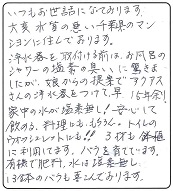 いつもお世話になっております。
大変水質の悪い千葉のマン
ションに住んでおります。
浄水器を取付ける前は、お風呂の
シャワーの塩素の臭いに驚きま
したが、娘からの提案でアクアス
さんの浄水器をつけて、早15年余り
家中の水が塩素無し!安心して
飲める、料理にも、もちろん、トイレの
ウォシュレットにも!! 3杯も鉢植
に利用してます。バラを育てています。
有機で肥料、水は塩素無し、
13本のバラも喜んでおります。